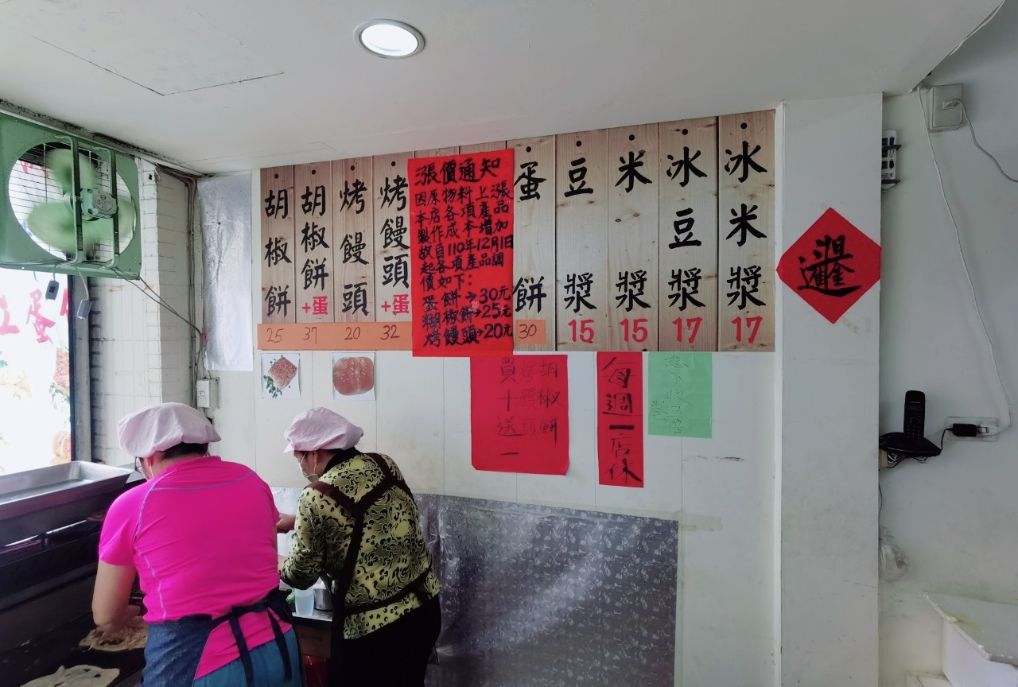 胡椒餅
25
胡椒餅+蛋
37
烤饅頭
20
烤饅頭+蛋
32
漲價通知
因原物料上漲
本店各項產品
製作成本增加
故自110年12月1日
起各項產品調
價如下:
蛋餅→30元
糊椒餅→25元
烤饅頭→20元
蛋餅
30
豆漿
15
米漿
15
冰豆漿
17
冰米漿
17
胡椒餅
買十送一
每週一店休
蛋